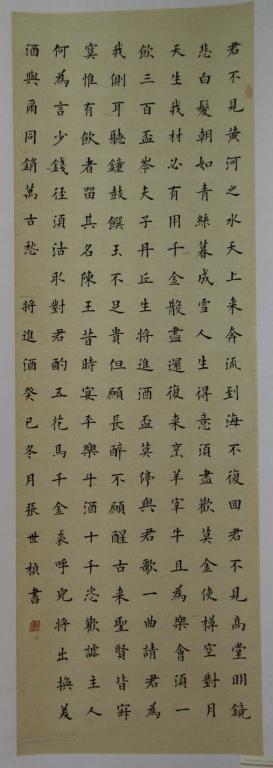 君不見黄河之水天上来奔流到海不復回君不見高堂明鏡
悲白髮朝如青絲暮成雪人生得意須盡歡莫金使樽空對月
天生我材必有用千金散盡還復来烹羊宰牛且為樂會須一
飲三百盃岑夫子丹丘生將進酒盃莫停與君歌一曲請君為
我側耳聽鐘鼓饌玉不足貴但願長醉不願醒古来聖賢皆寂
寞惟有飲者留其名陳王昔時宴平樂斗酒十千恣歡謔主人
何為言少錢徑須沽取對君酌五花馬千金裘呼兒將出換美
酒與爾同銷萬古愁 將進酒癸巳冬月張世楨書